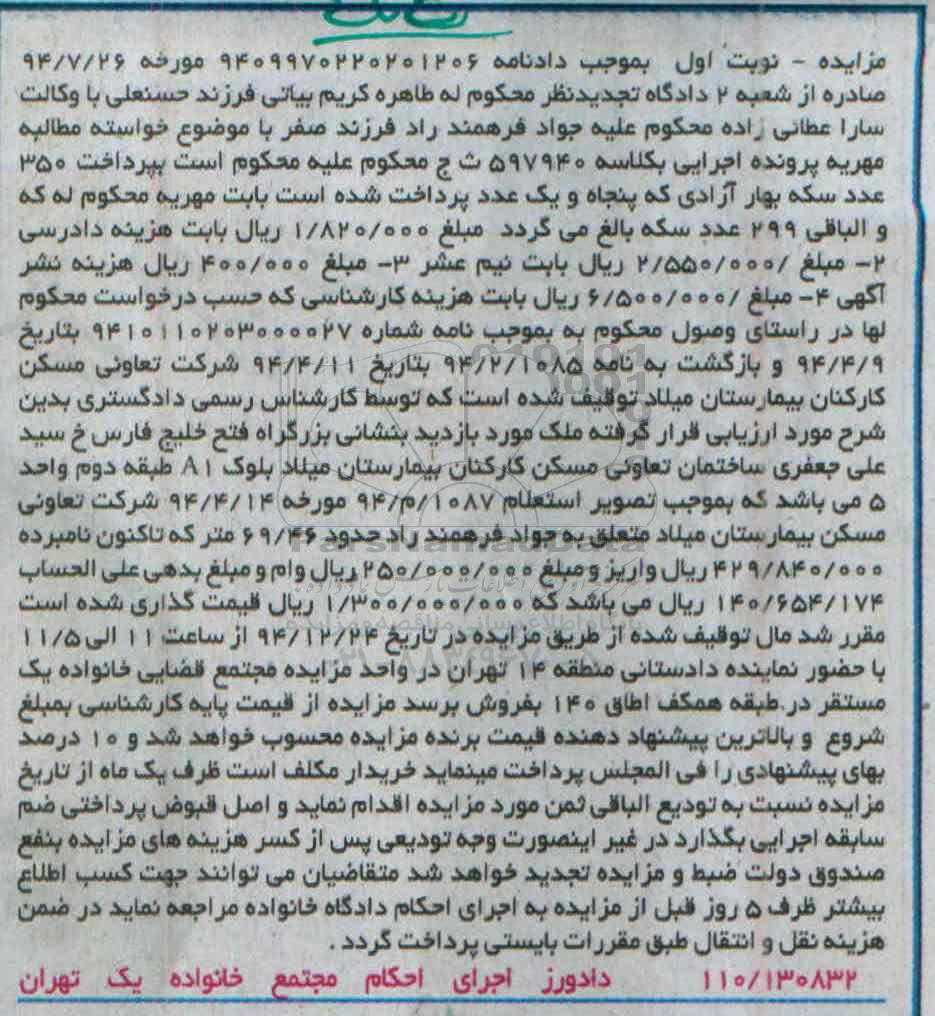 مزایده - نوبت اول بموجب دادنامه ۹۴۰۹۹۷۰۲۲۰۲۰۱۲۰۶ مورخه ۹۴/۷/۲۶
صادره از شعبه ۲ دادگاه تجدیدنظر محکوم له طاهره کریم بیاتی فرزند حسنعلی با وکالت
سارا عطائی زاده محکوم علیه جواد فرهمند راد فرزند صفر با موضوع خواسته مطالبه
مهریه پرونده اجرایی بکلاسه ۵۹۷۹۴۰ ث ج محکوم علیه محکوم است بپرداخت ۳۵۰
عدد سکه بهار آزادی که پنجاه و یک عدد پرداخت شده است بابت مهریه محکوم له که
و الباقی ۲۹۹ عدد سکه بالغ می گردد مبلغ ۱/۸۲۰/۰۰۰ ریال بابت هزینه دادرسی
۲- مبلغ /۲/۵۵۰/۰۰۰ ریال بابت نیم عشر ۳- مبلغ ۴۰۰/۰۰۰ ریال هزینه نشر
آگهی ۴- مبلغ /۶/۵۰۰/۰۰۰ ریال بابت هزینه کارشناسی که حسب درخواست محکوم
لها در راستای وصول محکوم به بموجب نامه شماره ۹۴۱۰۱۱۰۲۰۳۰۰۰۰۲۷ بتاریخ
۹۴/۴/۹ و بازگشت به نامه ۹۴/۲/۱۰۸۵ بتاریخ ۹۴/۴/۱۱ شرکت تعاونی مسکن
کارکنان بیمارستان میلاد توقیف شده است که توسط کارشناس رسمی دادگستری بدین
شرح مورد ارزیابی قرار گرفته ملک مورد بازدید بنشانی بزرگراه فتح خلیج فارس خ سید
علی جعفری ساختمان تعاونی مسکن کارکنان بیمارستان میلاد بلوک A۱ طبقه دوم واحد
۵ می باشد که بموجب تصویر استعلام ۱۰۸۷/م/۹۴ مورخه ۹۴/۴/۱۴ شرکت تعاونی
مسکن بیمارستان میلاد متعلق به جواد فرهمند راد حدود ۶۹/۴۶ متر که تاکنون نامبرده
ParsNamadData
۴۲۹/۸۴۰/۰۰۰ ریال واریز و مبلغ ۲۵۰/۰۰۰/۰۰۰ ریال وام و مبلغ بدهی علی الحساب
۱۴۰/۶۵۴/۱۷۴ ریال می باشد که ۱/۳۰۰/۰۰۰/۰۰۰ ریال قیمت گذاری شده است
مقرر شد مال توقیف شده از طریق مزایده در تاریخ ۹۴/۱۲/۲۴ از ساعت ۱۱ الی ۱۱/۵
با حضور نماینده دادستانی منطقه ۱۴ تهران در واحد مزایده مجتمع قضایی خانواده یک
مستقر در طبقه همکف اطاق ۱۴۰ بفروش برسد مزایده از قیمت پایه کارشناسی بمبلغ
شروع و بالاترین پیشنهاد دهنده قیمت برنده مزایده محسوب خواهد شد و ۱۰ درصد
بهای پیشنهادی را فی المجلس پرداخت مینماید خریدار مکلف است ظرف یک ماه از تاریخ
مزایده نسبت به تودیع الباقی ثمن مورد مزایده اقدام نماید و اصل قبوض پرداختی ضم
سابقه اجرایی بگذارد در غیر اینصورت وجه تودیعی پس از کسر هزینه های مزایده بنفع
صندوق دولت ضبط و مزایده تجدید خواهد شد متقاضیان می توانند جهت کسب اطلاع
بیشتر ظرف ۵ روز قبل از مزایده به اجرای احکام دادگاه خانواده مراجعه نماید در ضمن
هزینه نقل و انتقال طبق مقررات بایستی پرداخت گردد .
۱۱۰/۱۳۰۸۳۲ دادورز اجرای احکام مجتمع خانواده یک تهران